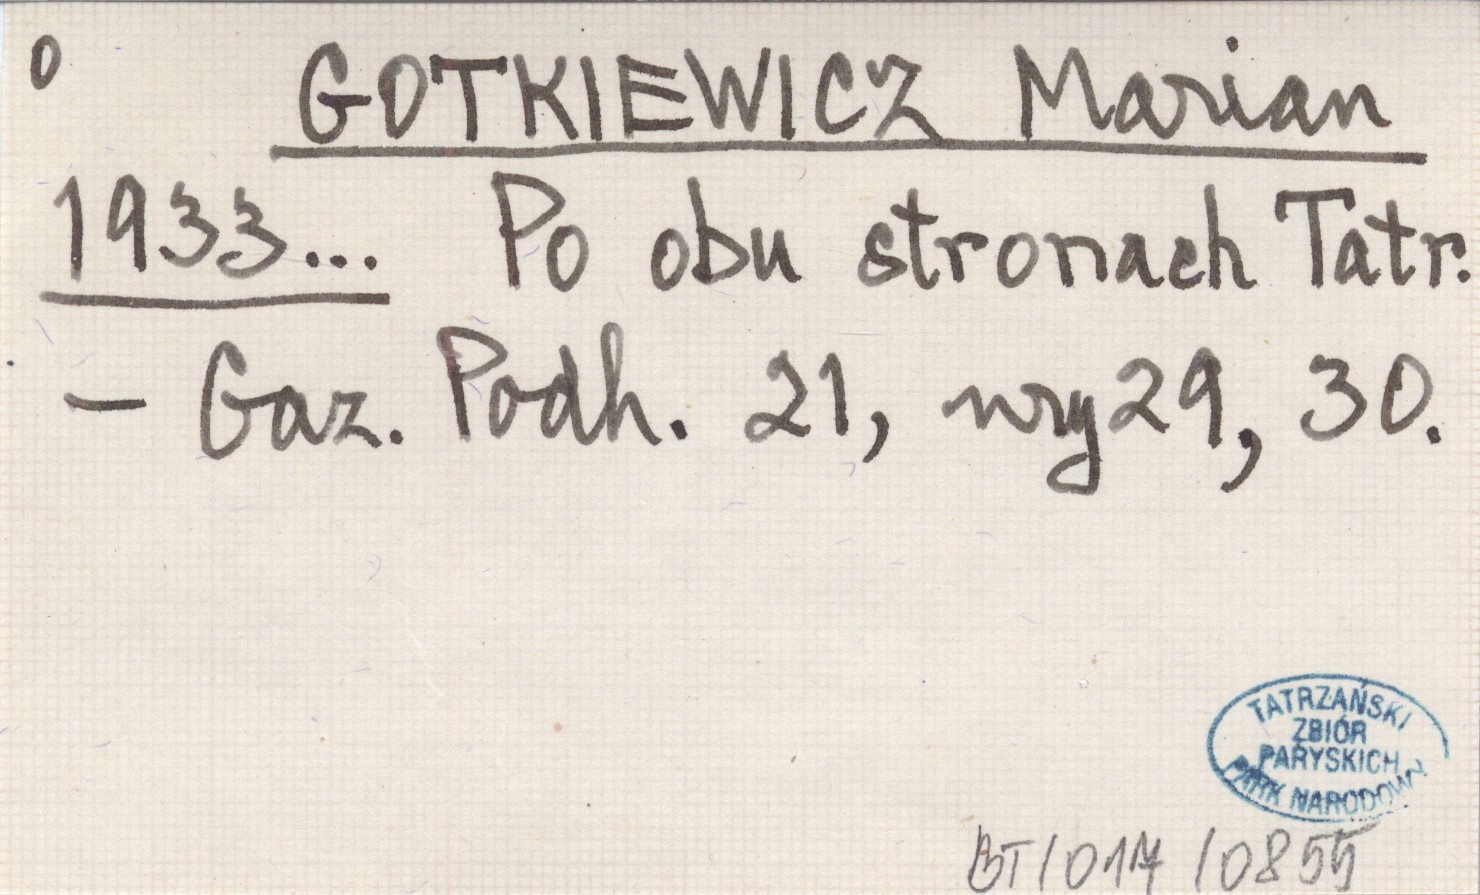 0 GOTKIEWICZ Marian
1933... Po obu stronach Tatr.
– Gaz. Podh. 21, nry 29, 30.
TATRZAŃSKI
ZBIÓR
PARYSKICH
PARK NARODOWY
BT/017/0855